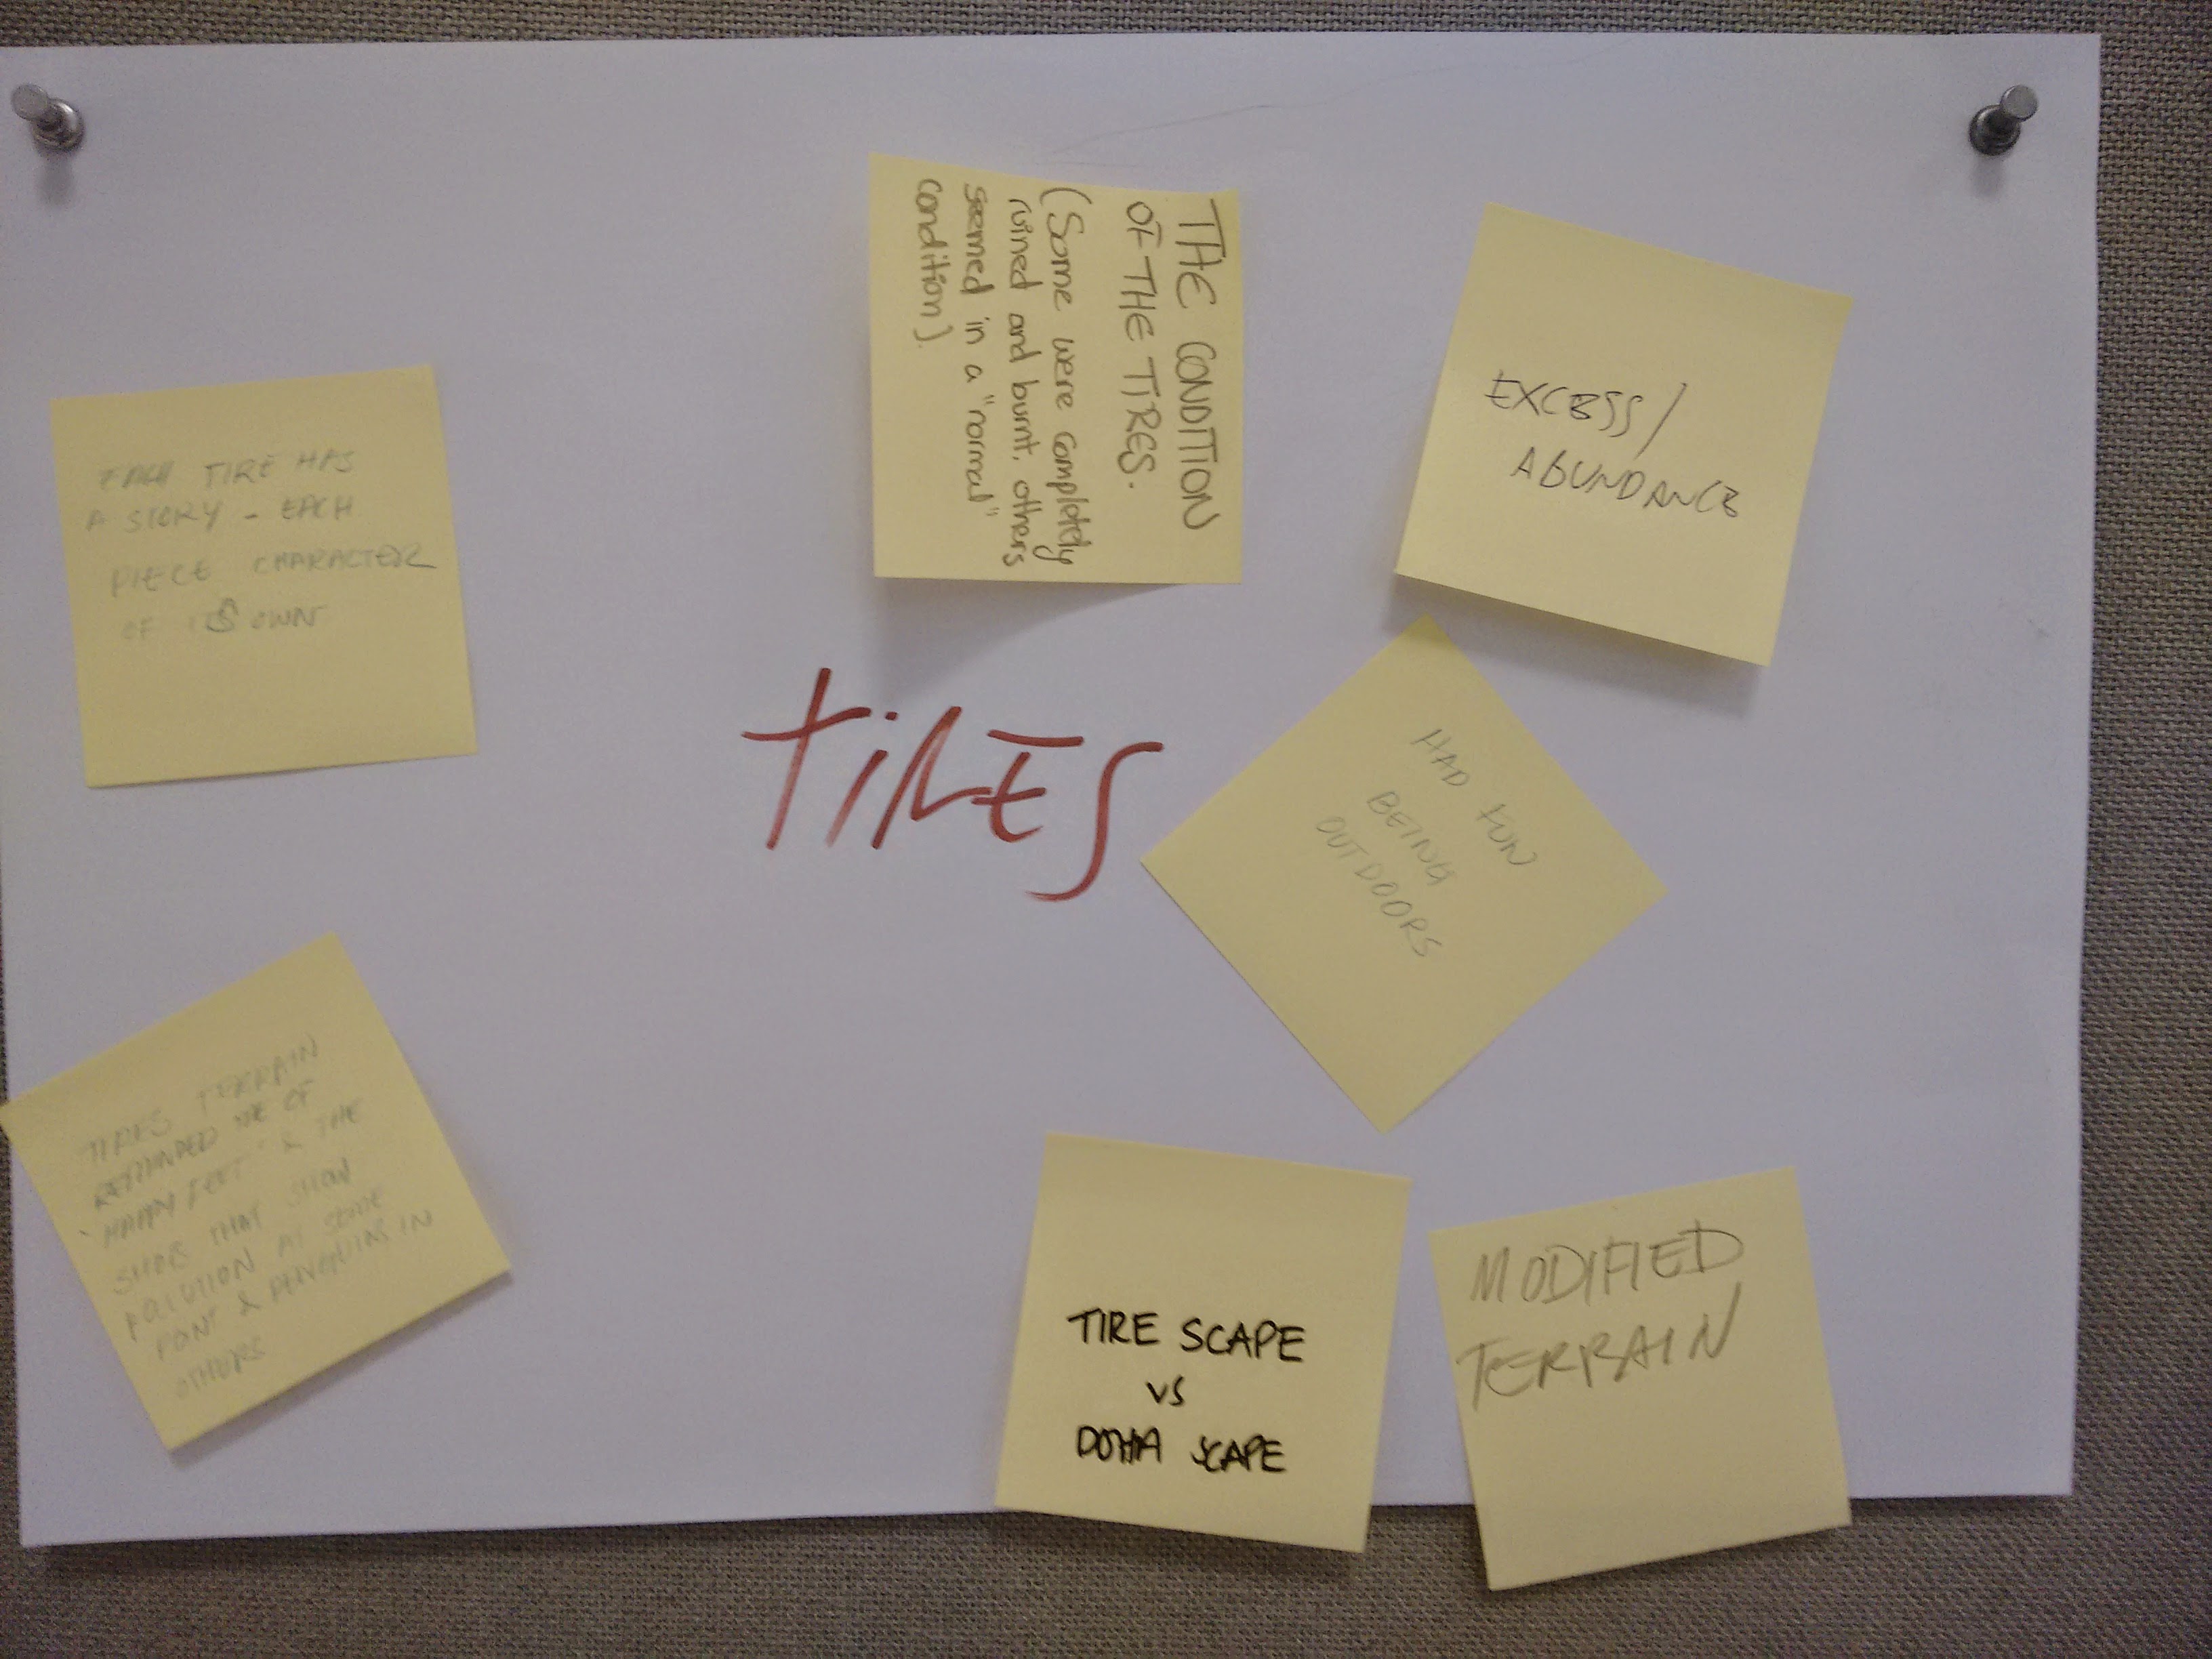 THE CONDITION
OF THE TIRES.
(Some were completely
ruined and burnt, others
seemed in a "normal"
condition).
EXCESS/
ABUNDANCE
EACH TIRE HAS
A STORY - EACH
PIECE CHARACTER
OF ITS OWN
TIRES
HAD FUN
BEING
OUTDOORS
TIRES TERRAIN
REMINDED ME OF
"HAPPY FEET" & THE
SHOTS THAT SHOW
POLLUTION AT SOME
POINT & PENGUINS IN
OTHERS
TIRE SCAPE
VS
DOHA SCAPE
MODIFIED
TERRAIN